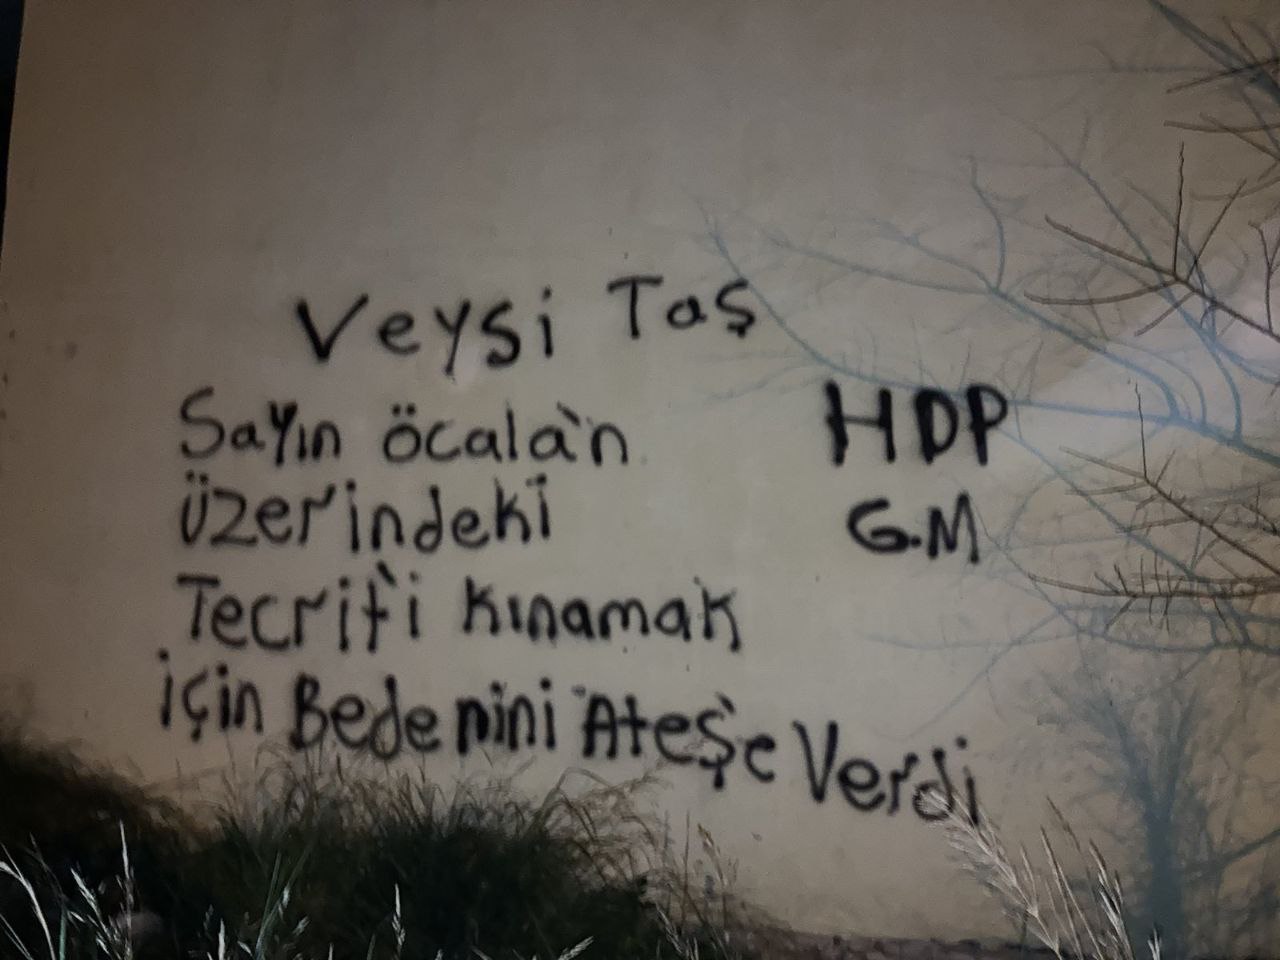 Veysi Taş
Sayın öcala'n
üzerindeki
Tecrit'i kınamak
için Bedenini Ateş'e Verdi
HDP
G.M